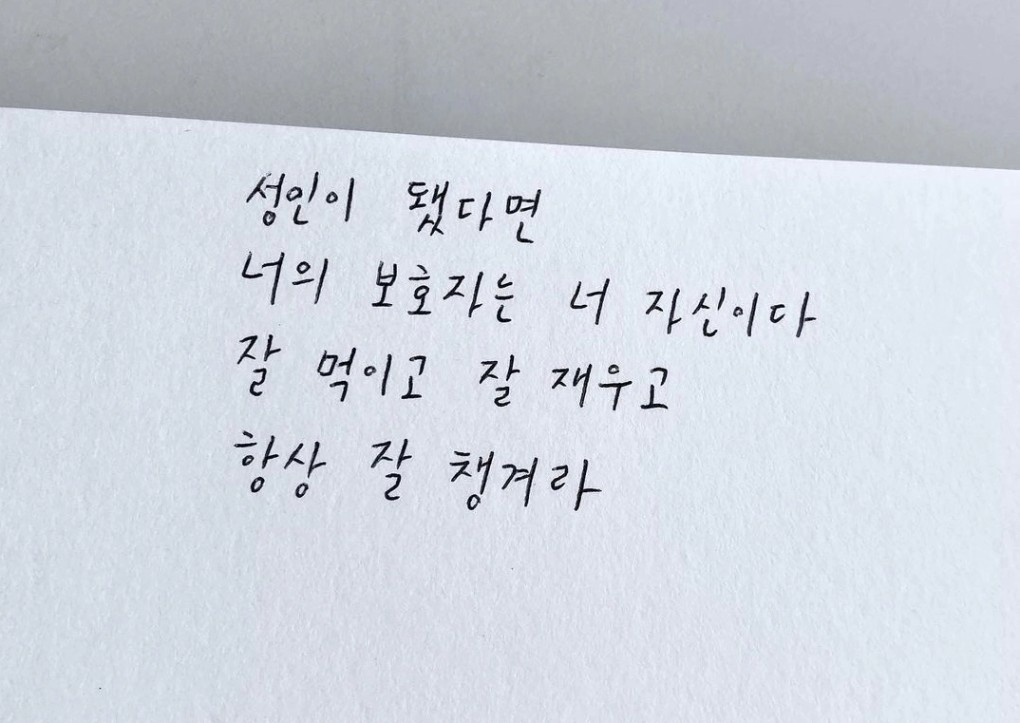 성인이 됐다면
너의 보호자는 너 자신이다
잘 먹이고 잘 재우고
항상 잘 챙겨라